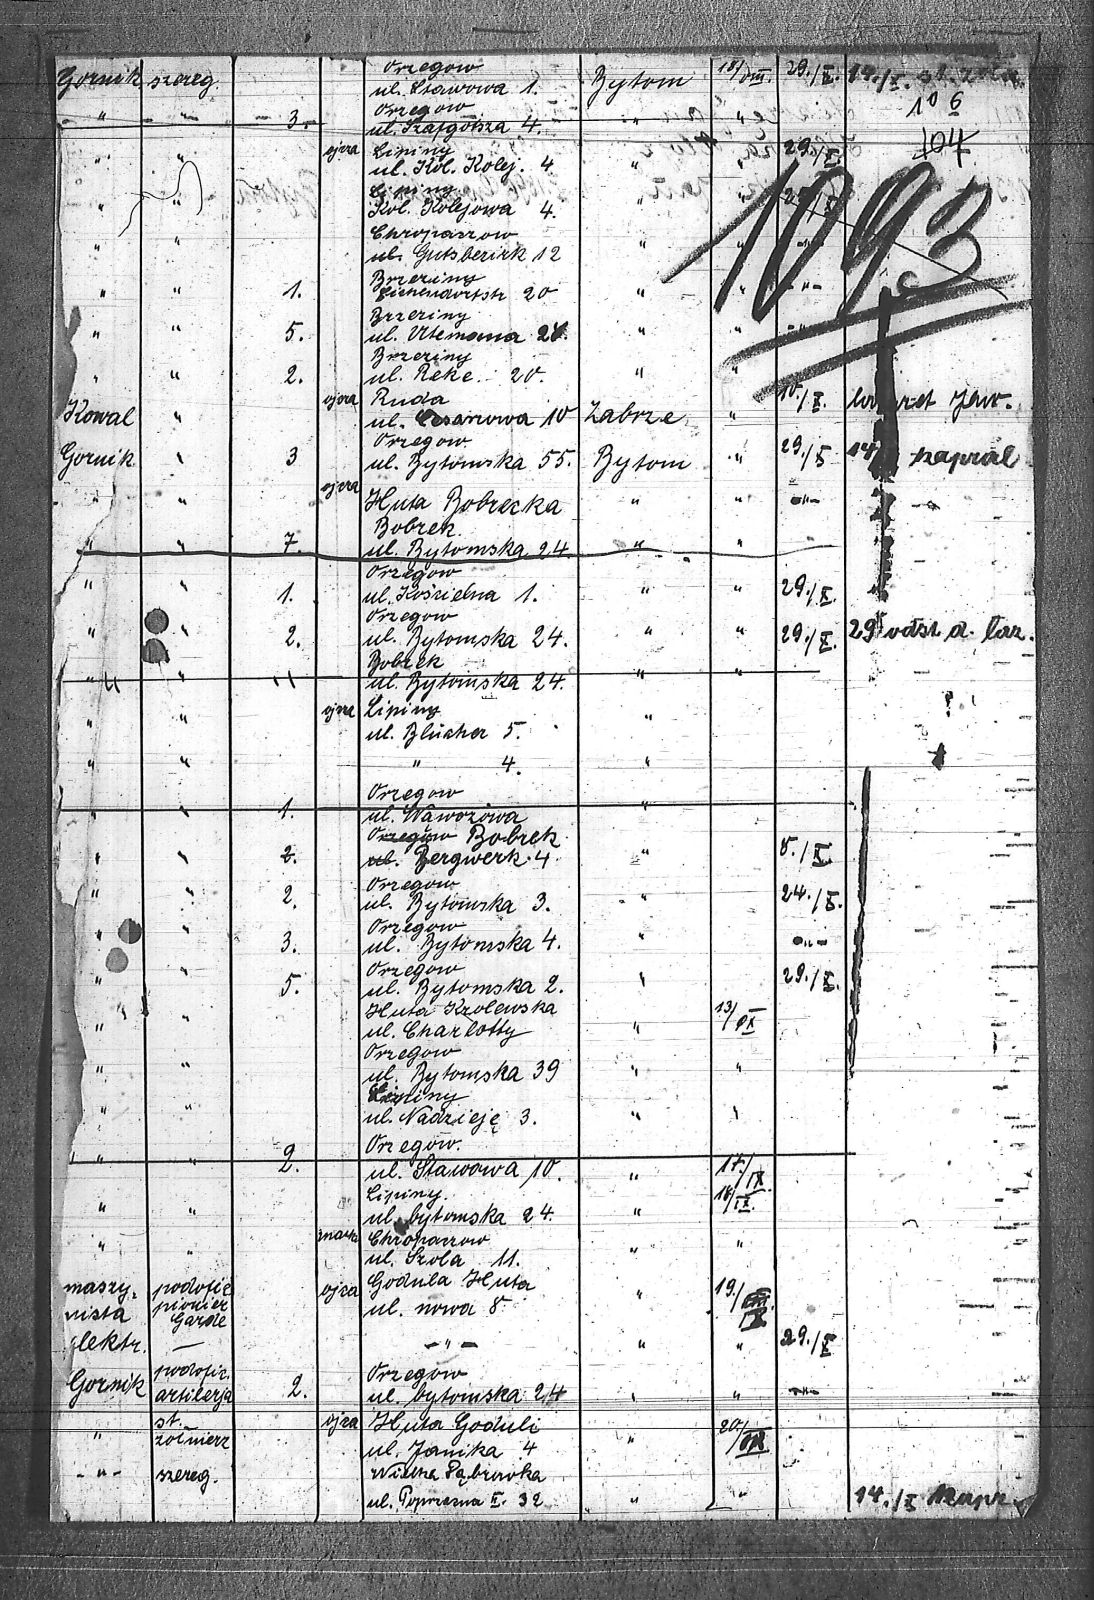 Gornik szereg. Orzegow
ul. Stawowa 1. Bytom 18/VIII. 29./X. 14./X. st.
Orzegow 106
" " - 3. - ul. Szafgotsza 4. "
ojca Lipiny 104
" " ul. Kol. Kolej. 4. " " 29./X.
Lipiny
" " Kol. Kolejowa 4. " " 1093
Chropaszow
" " ul. Gutsbezirk 12 " "
Brzeziny
" " 1. Eichendorfstr 20 " " -"-
Brzeziny
" " 5. ul. Utemana " " -"-
Brzeziny
" " 2. ul. Reke. 20. " "
ojca Ruda 10./X.
Kowal " ul. Cesarzowa 10 Zabrze "
Orzegow
Gornik " 3 ul. Bytomska 55. Bytom " 29./X 14 kapral
ojca
" " Huta Bobrecka " " -"-
Bobrek.
" " 7. ul. Bytomska 24. " "
Orzegow
" " 1. ul. Kościelna 1. " " 29./X.
Orzegow
" " 2. ul. Bytomska 24. " " 29./X. 29 odst. d. laz.
Bobrek
" " " ul. Bytomska 24. " "
" " ojca Lipiny "
ul. Blücher 5.
" " " 4. "
Orzegow
" " 1. ul. Wąwozowa "
Orzegow Bobrek
" " 2. ul. Bergwerk. 4. " 8./X
Orzegow
" " 2. ul. Bytomska 3. " 24./X.
Orzegow
" " 3. ul. Bytomska 4. " -"-
Orzegow
" " 5. ul. Bytomska 2. " 29./X.
Huta Krolewska
" " ul. Charlotty " 13/IX
Orzegow
" " ul. Bytomska 39 " "
Lipiny
" " ul. Nadzieję 3. " "
Orzegow.
" " 2. ul. Stawowa 10. " 17./IX
Lipiny.
" " ul. bytomska 24. " 18/IX.
" " Chropaszow
ul. Szola 11. " "
maszy- podofic ojca Godula Huta
nista pionier ul. nowa 8 " 19./
Garde
elektr. — -"- " " 29./X
podofic. Orzegow
Gornik artilerja 2. ul. bytomska 24 " " -"-
st. ojca Huta Goduli
" żołnierz ul. Janika 4 " 20./
-"- szereg. Dąbrowka
ul. Poprzeczna II. 32 " " 14./X kapr.